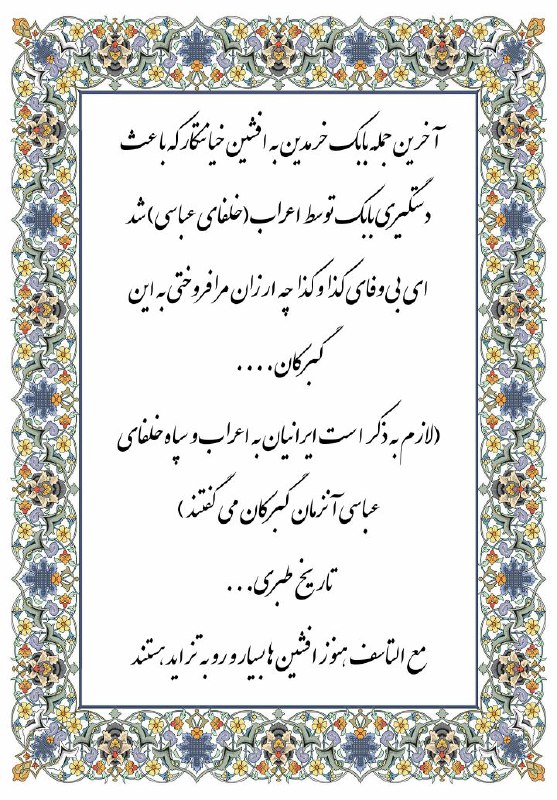 آخرین جمله بابک خرمدین به افشین خیانتکار که باعث
دستگیری بابک توسط اعراب(خلفای عباسی)شد
ای بی وفای کذا و کذا چه ارزان مرا فروختی به این
گبرکان....
(لازم به ذکر است ایرانیان به اعراب و سپاه خلفای
عباسی آنزمان گبرکان می گفتند)
تاریخ طبری...
مع التاسف هنوز افشین ها بسیار و رو به تزاید هستند